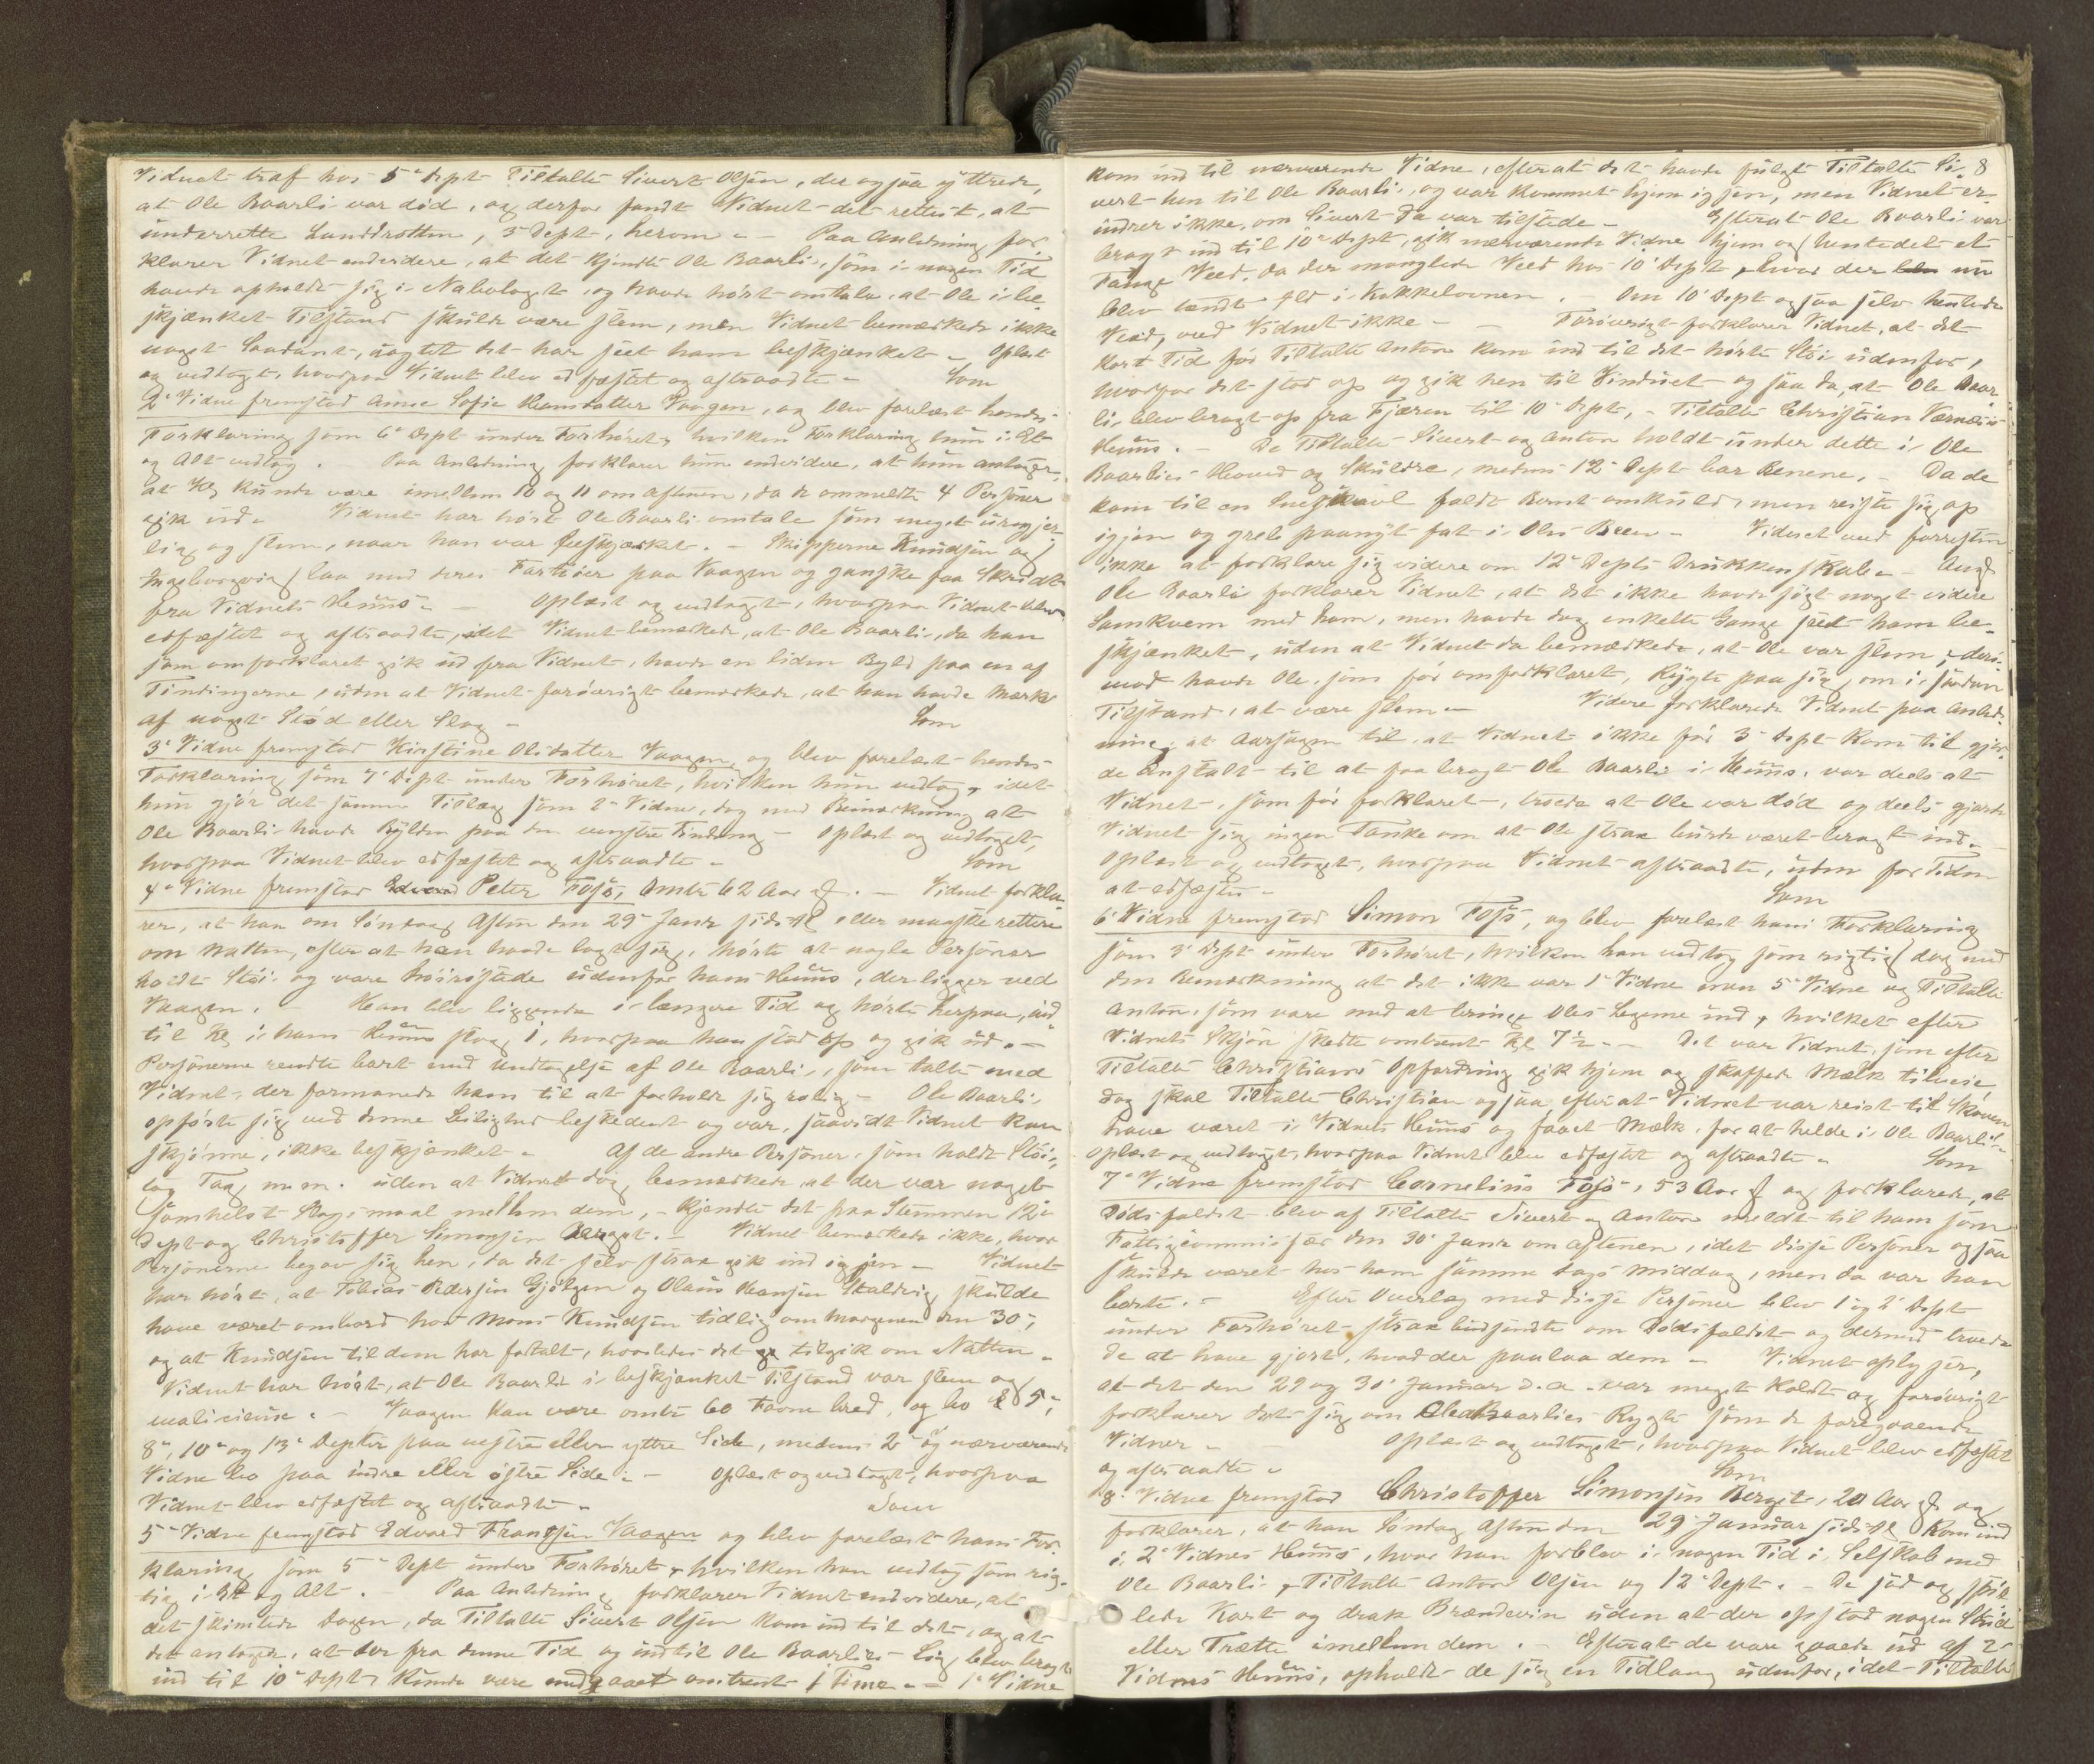 Vidnet traf hos 5te Dept Tiltalte Sivert Olsen, der ogsaa yttrede,
at Ole Baarli var död, og derfor fandt Vidnet det rettest, at
underrette Landdrotten, 3 Dept, herom. - Paa Anledning for
klarer Vidnet endvidere, at det kjendte Ole Baarli, som i nogen Tid
havde opholdt sig i Nabolaget, og havde hört omtale, at Ole i be
skjænket Tilstand skulde være slem, men Vidnet bemærkede ikke
noget Saadant, uagtet det har seet ham beskjænket - Oplæst
og vedtaget, hvorpaa Vidnet blev edfæstet og aftraadte - Som
2et Vidne fremstod Anne Sofie Hansdatter Vaagen, og blev forelæst hendes
Forklaring som 6te Dept under Forhöret, hvilken Forklaring hun i Et
og Alt vedtog. - Paa Anledning forklarer hun endvidere, at hun antager,
at Kl kunde være imellem 10 og 11 om Aftenen, da de ommeldte 4 Personer
gik ud. Vidnet har hört Ole Baarli omtale som meget uregjer
lig og slem, naar han var beskjænket. - Skipperne Knudsen og
Ingeborgvig laa med deres Fartöier paa Vaagen og ganske faa Skridt
fra Vidnets Huus. - Oplæst og vedtaget, hvorpaa Vidnet blev
edfæstet og aftraadte, idet Vidnet bemærkede, at Ole Baarli, da han
som omforklaret gik ud fra Vidnet, havde en liden Byld paa en af
Tindingerne, uden at Vidnet forövrigt bemærkede, at han havde Mærke
af noget Stöd eller Slag - Som
3die Vidne fremstod Kirstine Olsdatter Vaagen, og blev forelæst hendes
Forklaring som 7de Dept under Forhöret, hvilken hun vedtog, idet
hun gjör det samme Tillæg som 2et Vidne, dog med Bemærkning at
Ole Baarli havde Bylden paa den venstre Tinding - Oplæst og vedtaget,
hvorpaa Vidnet blev edfæstet og aftraadte - Som
4de Vidne fremstod Peter Foss, omtr 62 Aar gl. - Vidnet forkla
rer, at han om Söndag Aften den 29de Janr sidstl eller maaske rettere
om Natten, efter at han havde lagt sig, hörte at nogle Personer
holdt Stöi og vare höiröstede udenfor hans Huus, der ligger ved
Vaagen. - Han blev liggende i længere Tid og hörte herpaa, ind
til Kl i hans Huus slog 1, hvorpaa han stod op og gik ud. -
Personerne rendte bort med Undtagelse af Ole Baarli, som talte med
Vidnet, der formanede ham til at forholde sig rolig - Ole Baarli
opförte sig ved denne Leilighed beskedent og var, saavidt Vidnet kan
skjönne, ikke beskjænket - Af de andre Personer, som holdt Stöi,
tog Tag m.m. uden at Vidnet dog bemærkede, at der var noget
somhelst Slagsmaal mellem dem, - kjendte det paa Stemmen 12te
Dept og Christoffer Simonsen Berget. - Vidnet bemærkede ikke, hvor
Personerne begav sig hen, da det selv strax gik ind igjen - Vidnet
har hört, at Tobias Pedersen Gjölgen og Olaus Hansen Staldvig skulde
have været ombord hos Mons Knudsen tidlig om Morgenen den 30te,
og at Knudsen til dem har fortalt, hvorledes det tilgik om Natten -
Vidnet har hört, at Ole Baarli i beskjænket Tilstand var slem og
malicieuse. - Vaagen kan være omtr 60 Favne bred, og bo 5te,
8de, 10de og 13de Depter paa vestre eller yttre Side, medens 2et og nærværende
Vidne bo paa indre eller östre Side. - Oplæst og vedtaget, hvorpaa
Vidnet blev edfæstet og aftraadte - Som
5te Vidne fremstod Edvard Frantsen Vaagen og blev forelæst hans For
klaring som 5te Dept under Forhöret, hvilken han vedtog som rig
tig i Et og Alt. - Paa Anledning forklarer Vidnet endvidere, at
det skimtede Dagen, da Tiltalte Sivert Olsen kom ind til det, og at
det antager, at der fra denne Tid og indtil Ole Baarlis Lig blev bragt
ind til 10de Dept kunde være medgaaet omtrent 1 Time. - 1te Vidne
kom ind til nærværende Vidne, efterat det havde fulgt Tiltalte Si- 8
vert hen til Ole Baarli, og var kommet hjem igjen, men Vidnet er
indrer ikke, om Sivert da var tilstede - Efterat Ole Baarli var
bragt ind til 10de Dept, gik nærværende Vidne hjem og hentedet et
Fange Veed, da der manglede Veed hos 10de Dept, hvor der nu
blev tændt Ild i Kakkelovnen. - Om 10de Dept ogsaa selv hentede
Veed, veed Vidnet ikke - Forövrigt forklarer Vidnet, at det
kort Tid för Tiltalte Anton kom ind til det hörte Stöi udenfor,
hvorfor det stod op og gik hen til Vinduet og saa da, at Ole Baar
li blev bragt op fra Fjæren til 10de Dept, - Tiltalte Christian Værnæs's
Huus. - De Tiltalte Sivert og Anton holdt under dette i Ole
Baarlies Hoved og Skuldre, medens 12te Dept bar Benene. - Da de
kom til en Sneskavl faldt Bernt omkuld, men reiste sig op
igjen og greb paanyt fat i Oles Been - Vidnet veed forresten
ikke at forklare sig videre om 12te Depts Drukkenskab. - Ang
Ole Baarli forklarer Vidnet, at det ikke havde havt noget videre
Samkvem med ham, men havde dog enkelte Gange seet ham be
skjænket, uden at Vidnet da bemærkede, at Ole var slem, deri
mod havde Ole, som för omforklaret, Rygte paa sig, om i saadan
Tilstand, at være slem - Videre forklarede Vidnet paa Anled
ning, at Aarsagen til, at Vidnet ikke för 3die Dept kom til gjor
de Anstalt til at faa bragt Ole Baarli i Huus, var deels at
Vidnet, som för forklaret, troede at Ole var död og deels gjorde
Vidnet sig ingen Tanke om at Ole strax burde været bragt ind. -
Oplæst og vedtaget, hvorpaa Vidnet aftraadte, uden for Tiden
at edfæstes - Som
6te Vidne fremstod Simon Foss, og blev forelæst hans Forklaring
som 3die Dept under Forhöret, hvilken han vedtog som rigtig dog med
den Bemærkning at det ikke var 1te Vidne men 5te Vidne og Tiltalte
Anton, som vare med at bringe Oles Legeme ind, hvilket efter
Vidnets Skjön skedte omtrent Kl 7½. - Det var Vidnet, som efter
Tiltalte Christians Opfordring gik hjem og skaffede Mælk tilveie,
dog skal Tiltalte Christian ogsaa, efterat Vidnet var reist til Skoven
have været i Vidnets Huus og faaet Mælk, for at helde i Ole Baarli -
Oplæst og vedtaget, hvorpaa Vidnet blev edfæstet og aftraadte - Som
7de Vidne fremstod Cornelius Foss, 53 Aar gl og forklarede, at
Dödsfaldet blev af Tiltalte Sivert og Anton meldt til ham som
Fattigcommissær den 30te Janr om Aftenen, idet disse Personer ogsaa
skulde været hos ham samme Dags Middag, men da var han
borte. - Efter Overlæg med disse Personer blev 1te og 2et Dept
under Forhöret strax budsendte om Dödsfaldet og dermed troede
de at have gjort, hvad der paalaa dem - Vidnet oplyser,
at det den 29 og 30te Januar d. a. var meget koldt og forövrigt
forklarer det sig om Ole Baarlies Rygte som de foregaaende
Vidner - Oplæst og vedtaget, hvorpaa Vidnet blev edfæstet
og aftraadte - Som
8de Vidne fremstod Christoffer Simonsen Berget, 20 Aar gl og
forklarer, at han Söndag Aften den 29de Januar sidstl kom ind
i 2et Vidnes Huus, hvor han forblev i nogen Tid i Selskab med
Ole Baarli, Tiltalte Anton Olsen og 12te Dept. - De sad og spil
lede Kort og drak Brændeviin uden at der opstod nogen Strid
eller Trætte imellem dem. - Efterat de vare gaaede ud af 2et
Vidnes Huus, opholdt de sig en Tidlang udenfor, idet Tiltalte